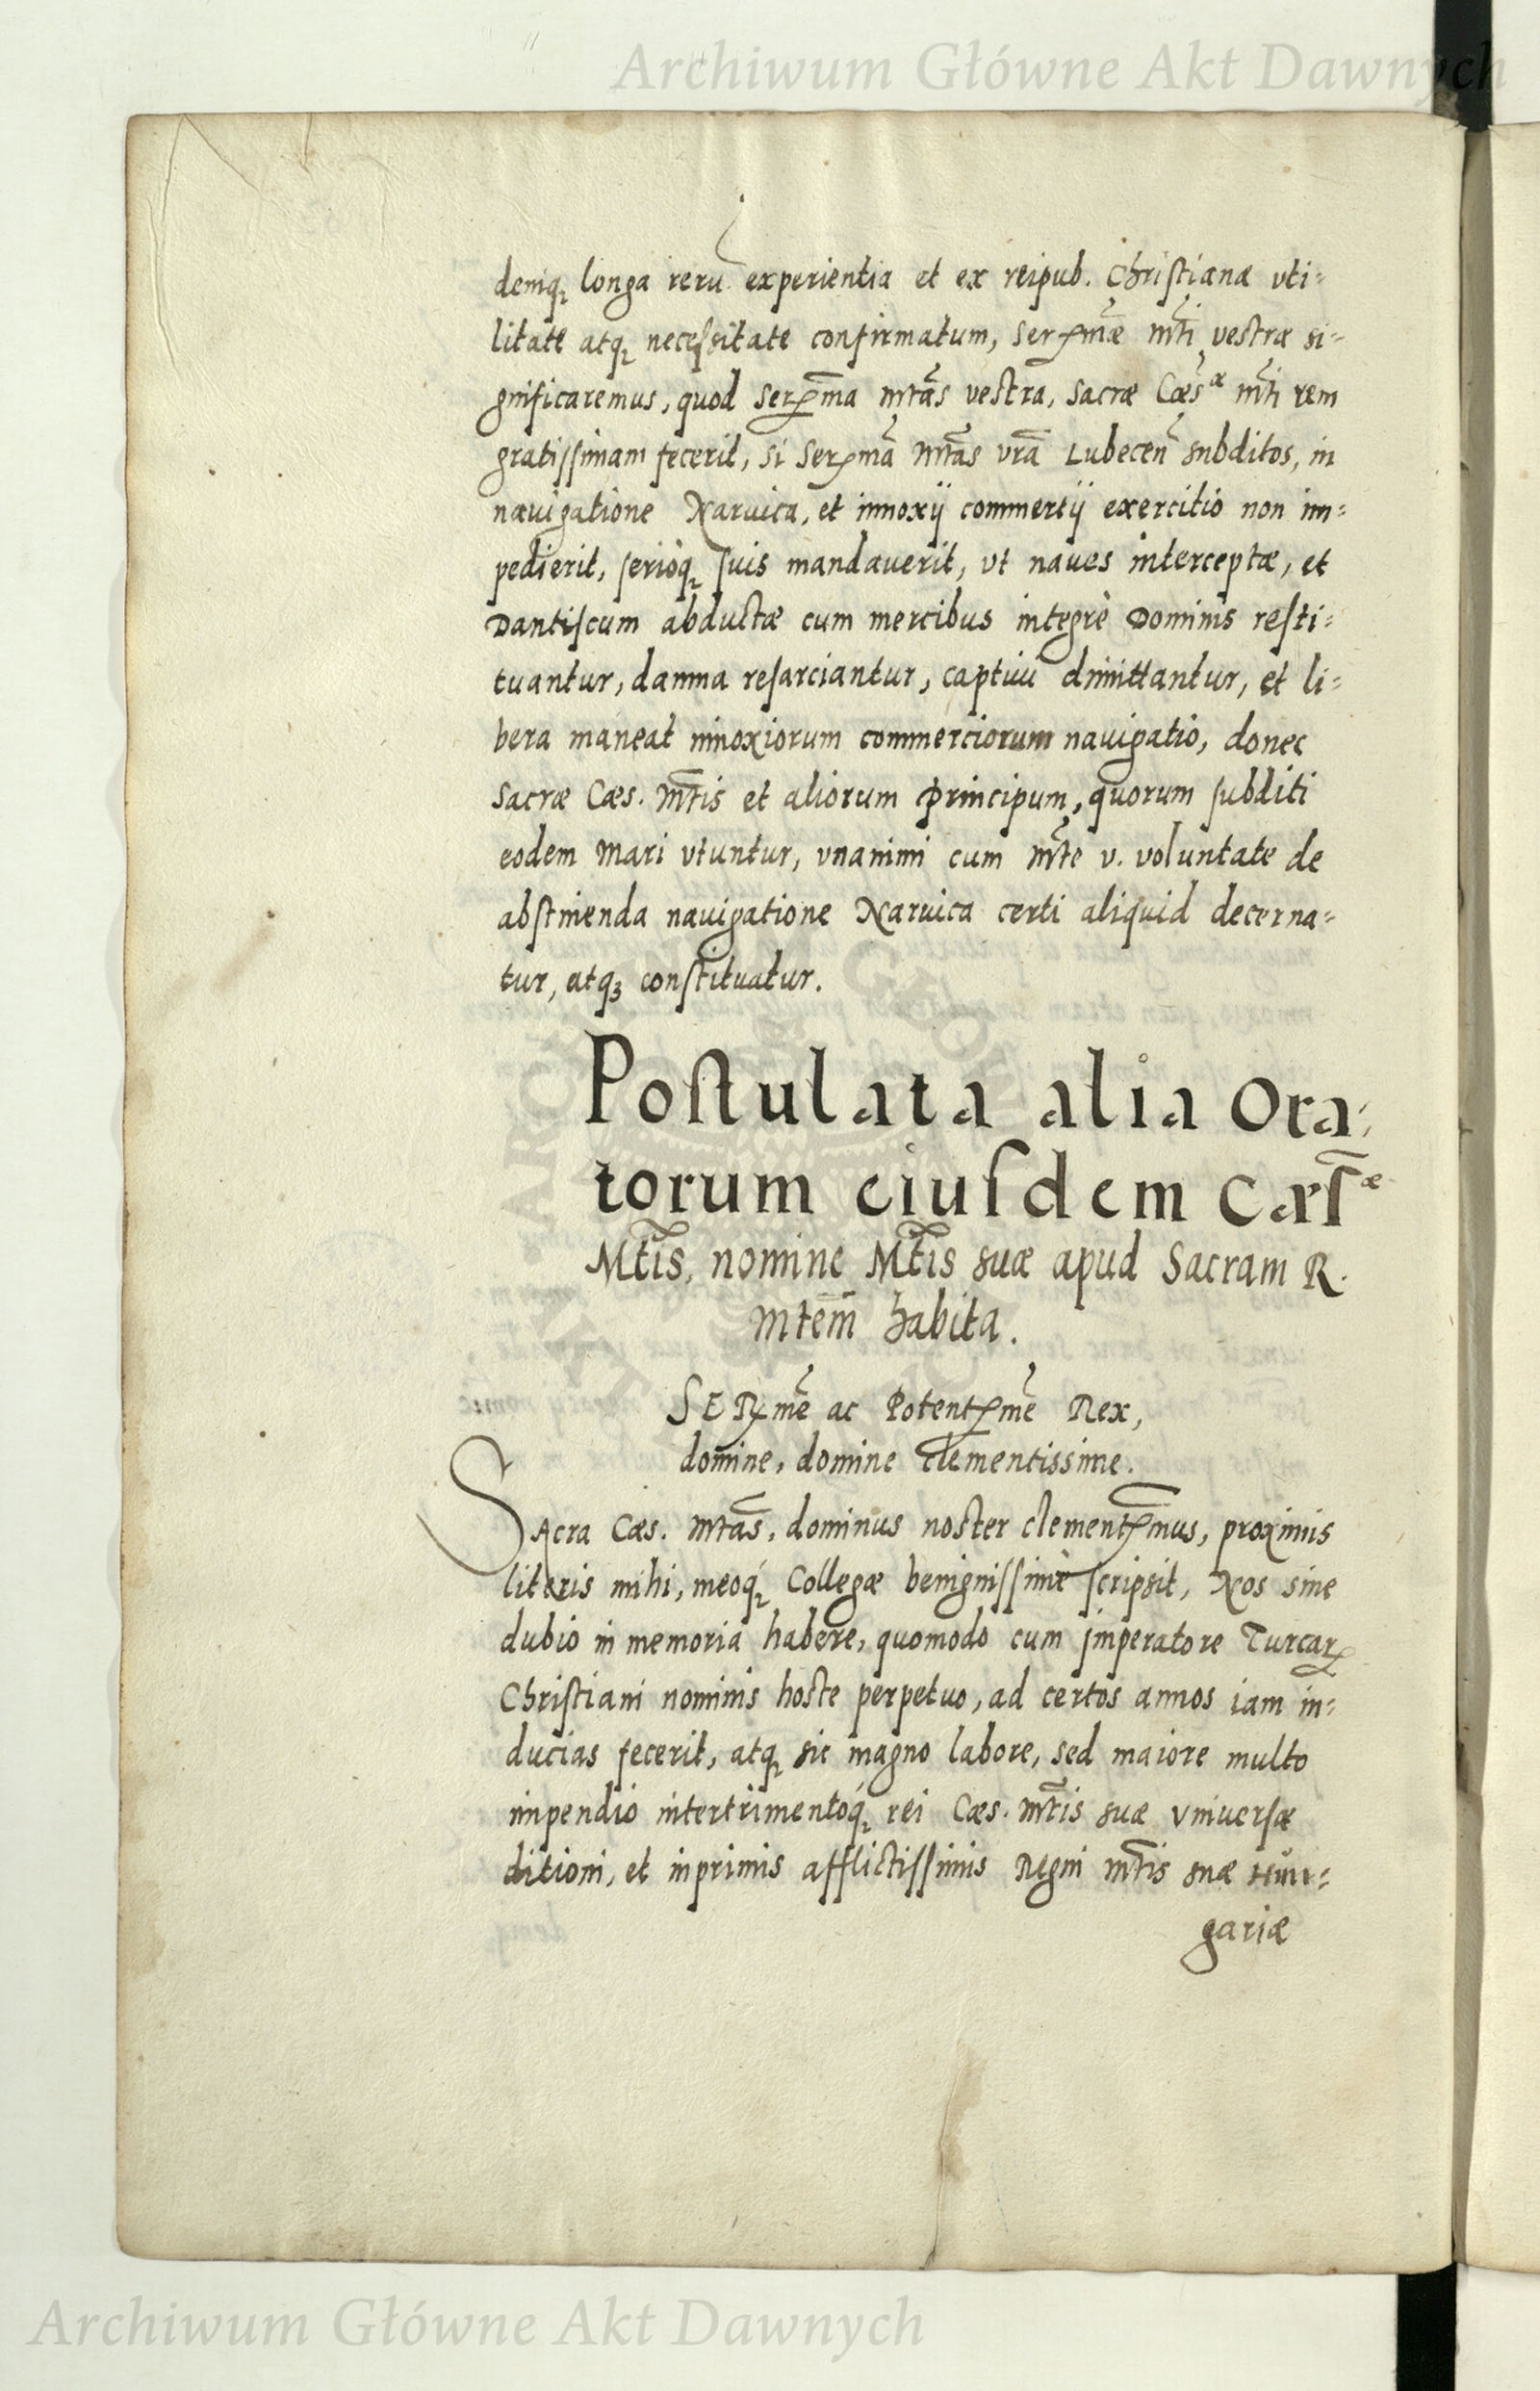 Archiwum Główne Akt Dawnych
deniq₂ longa rerū experientia et ex reipub. Christianæ vti=
litate atq₂ necessitate confirmatum, serꝑmæ̃ mti̅ vestræ si=
gnificaremus, quod serꝑm̃a mtãs vestra, sacræ Cæs̃ᵃᵉ mti̅ rem
gratissimam fecerit, si serꝑmã mtãs vrã Lubeceñ subditos, in
nauigatione Naruica, et innoxij commertij exercitio non im=
pedierit, serioq₂ suis mandauerit, vt naues interceptæ, et
Dantiscum abductæ cum mercibus integrè Dominis resti=
tuantur, damna resarciantur, captiui dimittantur, et li=
bera maneat innoxiorum commerciorum nauigatio, donec
sacræ Cæs. mt̃is et aliorum principum, quorum subditi
eodem mari vtuntur, vnanimi cum mt̃e v. voluntate de
abstinenda nauigatione Naruica certi aliquid decerna=
tur, atqꝫ constituatur.
Postulata alia Ora=
torum eiusdem Cæs̃ᵃᵉ
Mt̃is, nomine Mt̃is suæ apud Sacram R.
mtem̃ habita.
SERꝑmẽ ac Potentꝑmẽ Rex,
domine, domine clementissime.
SAcra Cæs. mtãs, dominus noster clementꝑm̃us, proximis
literis mihi, meoq́₂ Collegæ benignissimè scripsit, Nos sine
dubio in memoria habere, quomodo cum imperatore Turcaꝝ
Christiani nominis hoste perpetuo, ad certos annos iam in=
ducias fecerit, atq₂ sic magno labore, sed maiore multo
impendio intertrimentoq́₂ rei Cæs. mt̃is suæ vniuersæ
ditioni, et inprimis afflictissimis Regni mt̃is suæ Hun=
gariæ
Archiwum Główne Akt Dawnych